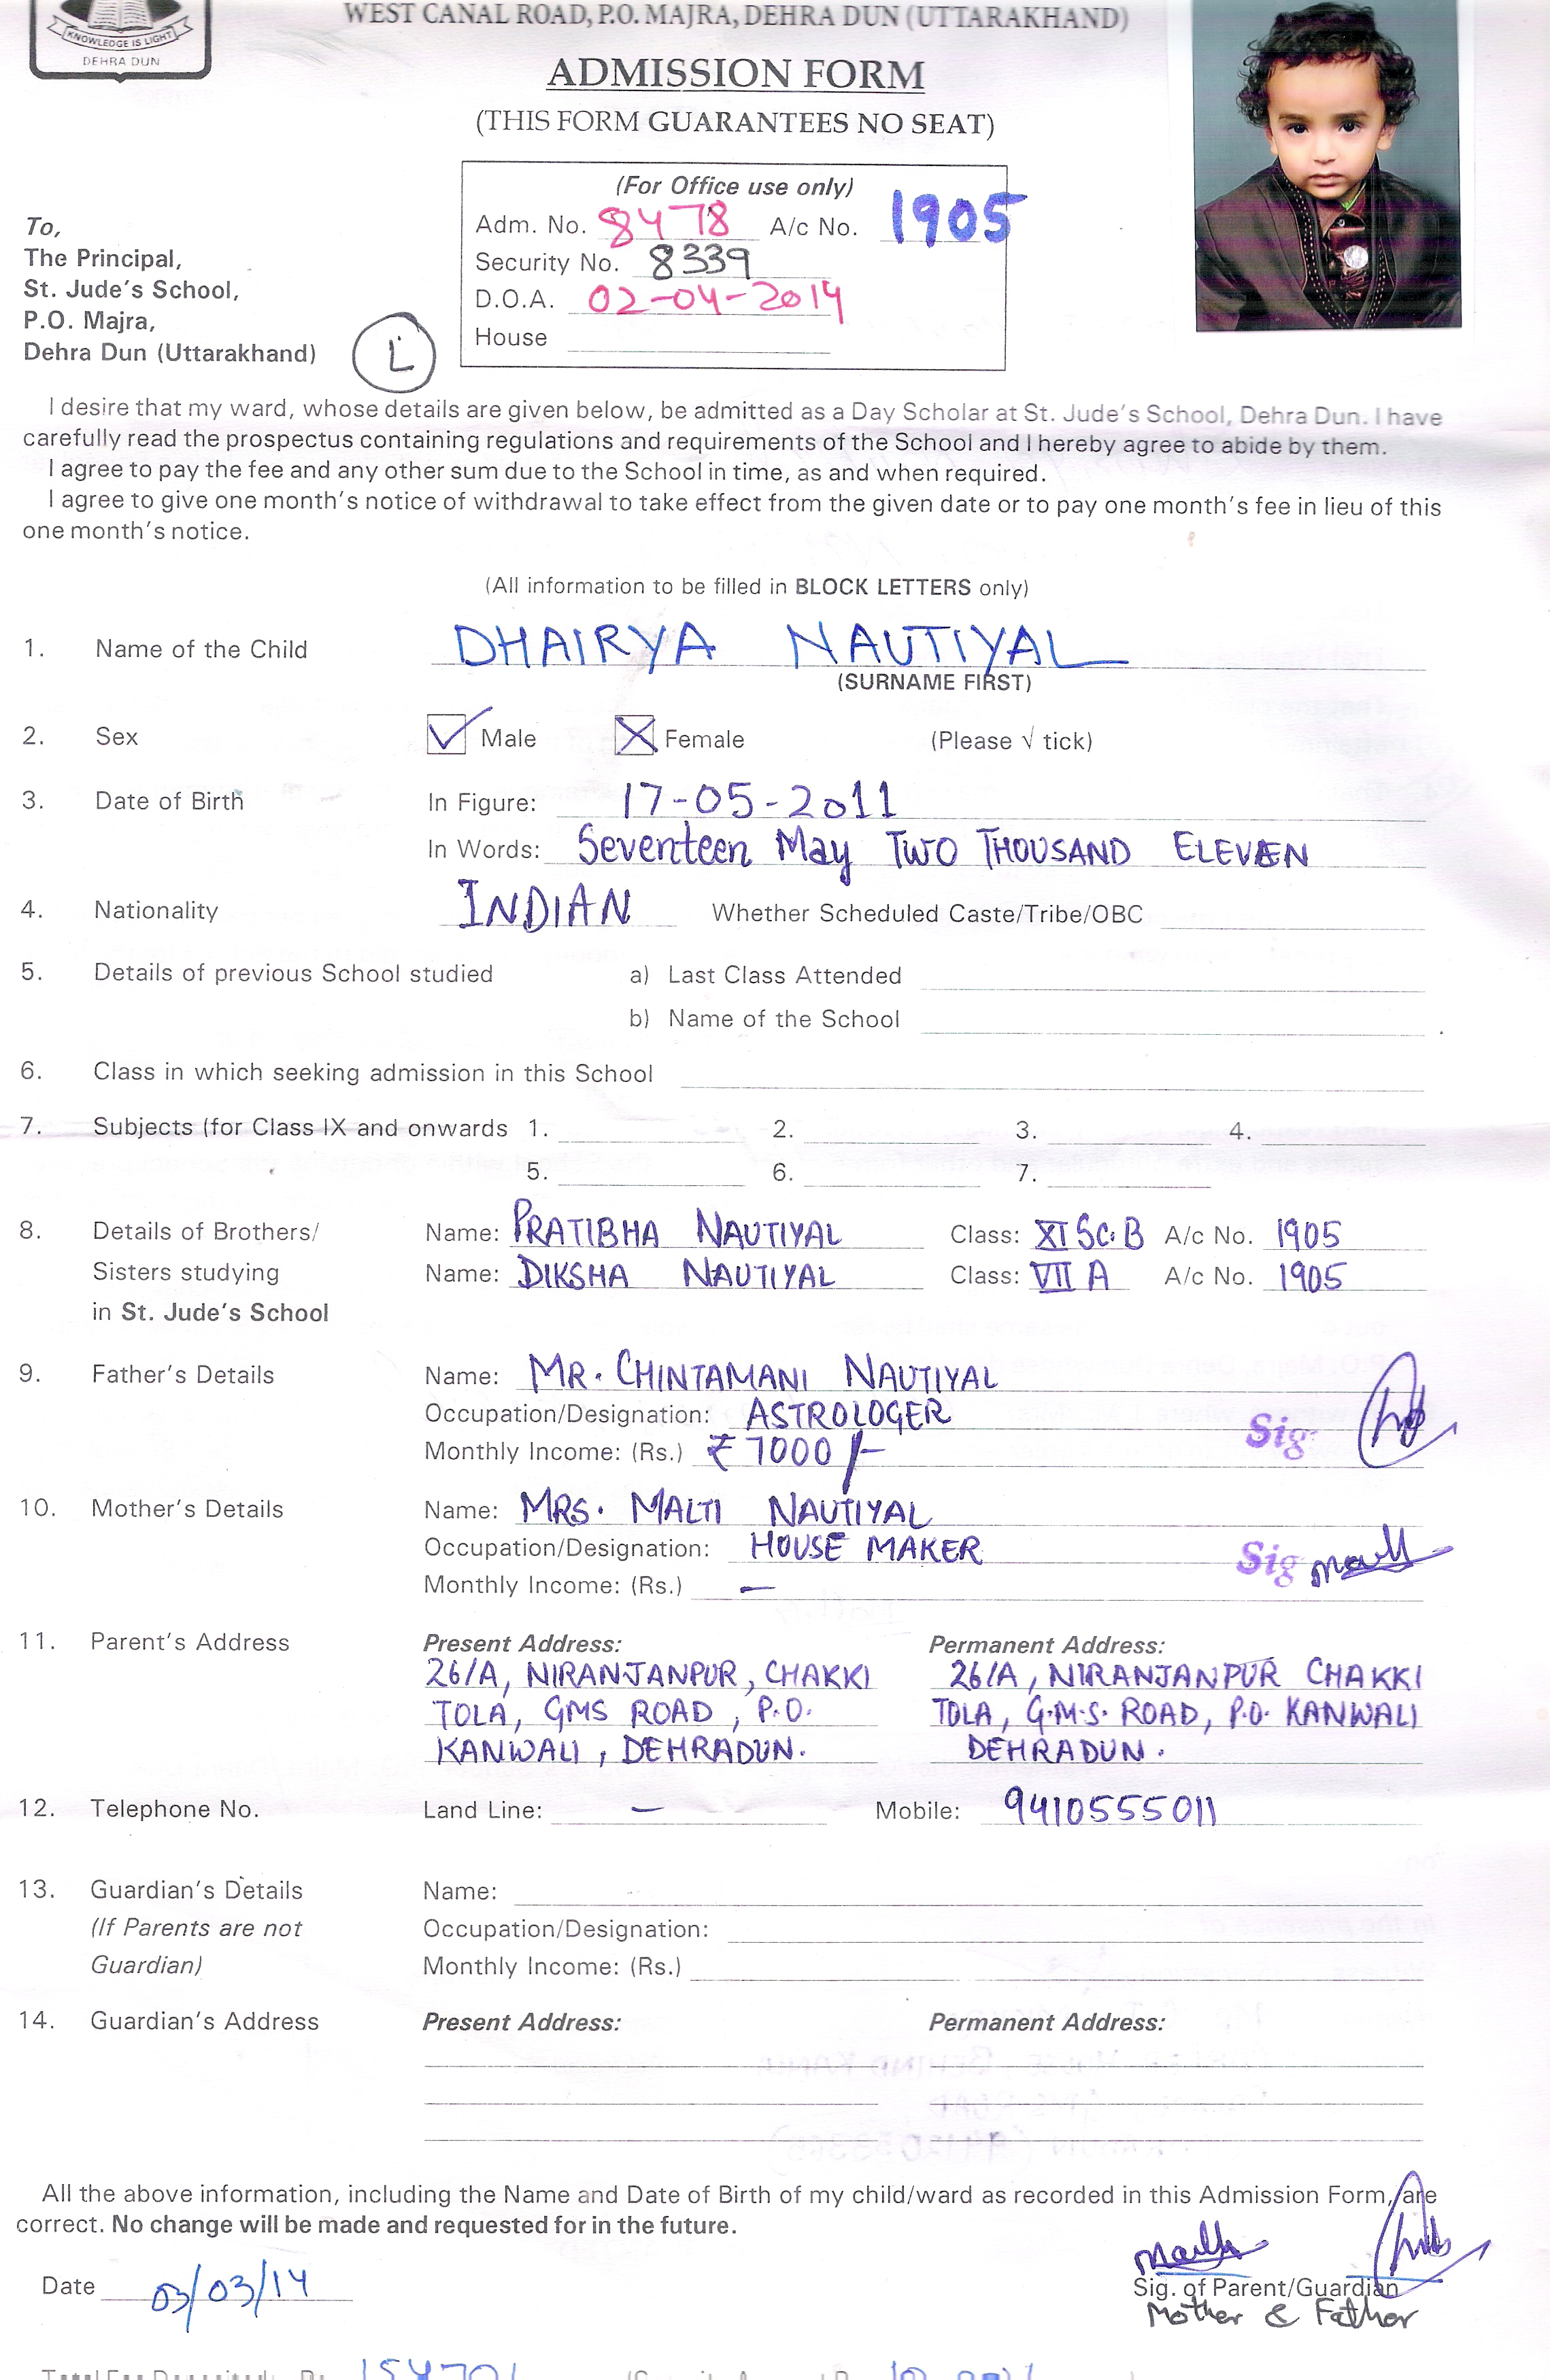 KNOWLEDGE IS LIGHT
DEHRA DUN
WEST CANAL ROAD, P.O. MAJRA, DEHRA DUN (UTTARAKHAND)
ADMISSION FORM
(THIS FORM GUARANTEES NO SEAT)
(For Office use only)
Adm. No. 8478 A/c No. 1905
Security No. 8339
D.O.A. 02-04-2014
House
To,
The Principal,
St. Jude's School,
P.O. Majra,
Dehra Dun (Uttarakhand)
L
I desire that my ward, whose details are given below, be admitted as a Day Scholar at St. Jude's School, Dehra Dun. I have
carefully read the prospectus containing regulations and requirements of the School and I hereby agree to abide by them.
I agree to pay the fee and any other sum due to the School in time, as and when required.
I agree to give one month's notice of withdrawal to take effect from the given date or to pay one month's fee in lieu of this
one month's notice.
(All information to be filled in BLOCK LETTERS only)
1. Name of the Child DHAIRYA NAUTIYAL
(SURNAME FIRST)
2. Sex Male Female (Please √ tick)
3. Date of Birth In Figure: 17-05-2011
In Words: Seventeen May TWO THOUSAND ELEVEN
4. Nationality INDIAN Whether Scheduled Caste/Tribe/OBC
5. Details of previous School studied a) Last Class Attended
b) Name of the School
6. Class in which seeking admission in this School
7. Subjects (for Class IX and onwards 1. 2. 3. 4.
5. 6. 7.
8. Details of Brothers/ Name: PRATIBHA NAUTIYAL Class: XI SC.B A/c No. 1905
Sisters studying Name: DIKSHA NAUTIYAL Class: VII A A/c No. 1905
in St. Jude's School
9. Father's Details Name: MR. CHINTAMANI NAUTIYAL
Occupation/Designation: ASTROLOGER Sig.
Monthly Income: (Rs.) ₹ 7000/-
10. Mother's Details Name: MRS. MALTI NAUTIYAL
Occupation/Designation: HOUSE MAKER Sig
Monthly Income: (Rs.) —
11. Parent's Address Present Address: Permanent Address:
26/A, NIRANJANPUR, CHAKKI 26/A, NIRANJANPUR CHAKKI
TOLA, GMS ROAD, P.O. TOLA, G.M.S. ROAD, P.O. KANWALI
KANWALI, DEHRADUN. DEHRADUN.
12. Telephone No. Land Line: — Mobile: 9410555011
13. Guardian's Details Name:
(If Parents are not Occupation/Designation:
Guardian) Monthly Income: (Rs.)
14. Guardian's Address Present Address: Permanent Address:
All the above information, including the Name and Date of Birth of my child/ward as recorded in this Admission Form, are
correct. No change will be made and requested for in the future.
Date 03/03/14
Sig. of Parent/Guardian
Mother & Father